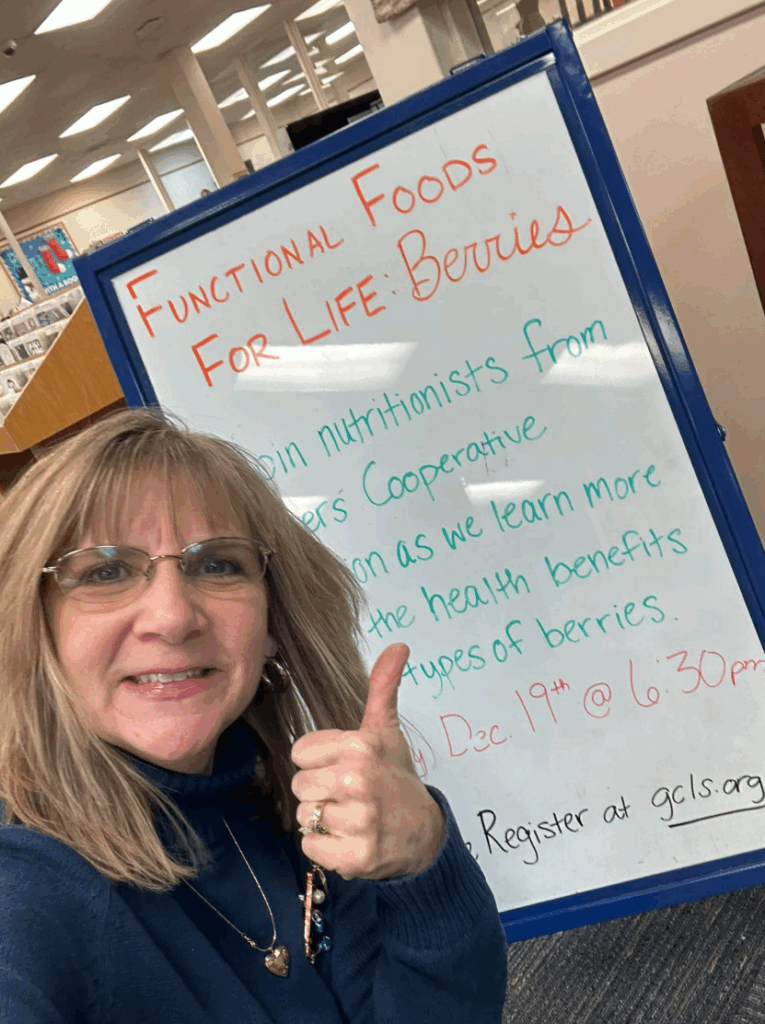 FUNCTIONAL FOODS
FOR LIFE: Berries
oin nutritionists from
ers' Cooperative
on as we learn more
the health benefits
types of berries.
y Dec. 19th @ 6:30pm
Register at gcls.org